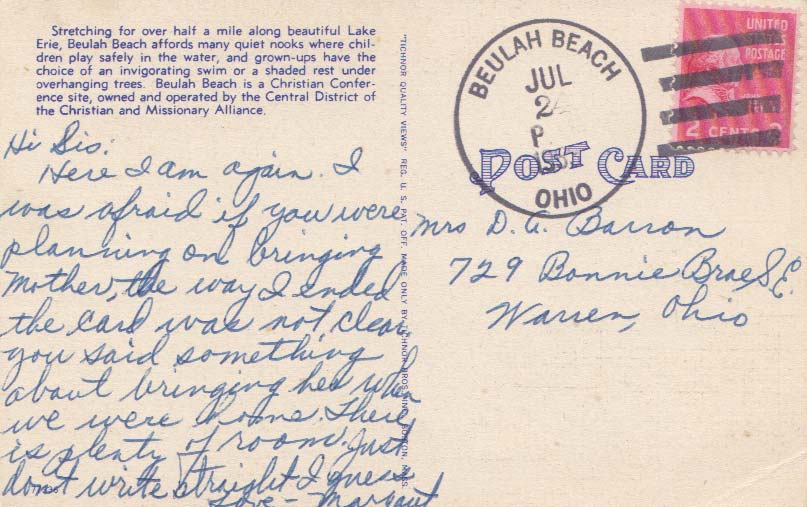 Stretching for over half a mile along beautiful Lake
Erie, Beulah Beach affords many quiet nooks where chil-
dren play safely in the water, and grown-ups have the
choice of an invigorating swim or a shaded rest under
overhanging trees. Beulah Beach is a Christian Confer-
ence site, owned and operated by the Central District of
the Christian and Missionary Alliance.
Hi Sis:
Here I am again. I
was afraid if you were
planning on bringing
Mother, the way I ended
the card was not clear
you said something
about bringing her when
we were home. There
is plenty of room. Just
don't write straight I guess
Love - Margaret
"TICHNOR QUALITY VIEWS" REG. U. S. PAT. OFF. MADE ONLY BY TICHNOR BROS., INC., BOSTON, MASS.
BEULAH BEACH
JUL
P
OHIO
UNITED
STATES
POSTAGE
2 CENTS 2
POST CARD
Mrs D. A. Barron
729 Bonnie Brae S.E.
Warren, Ohio